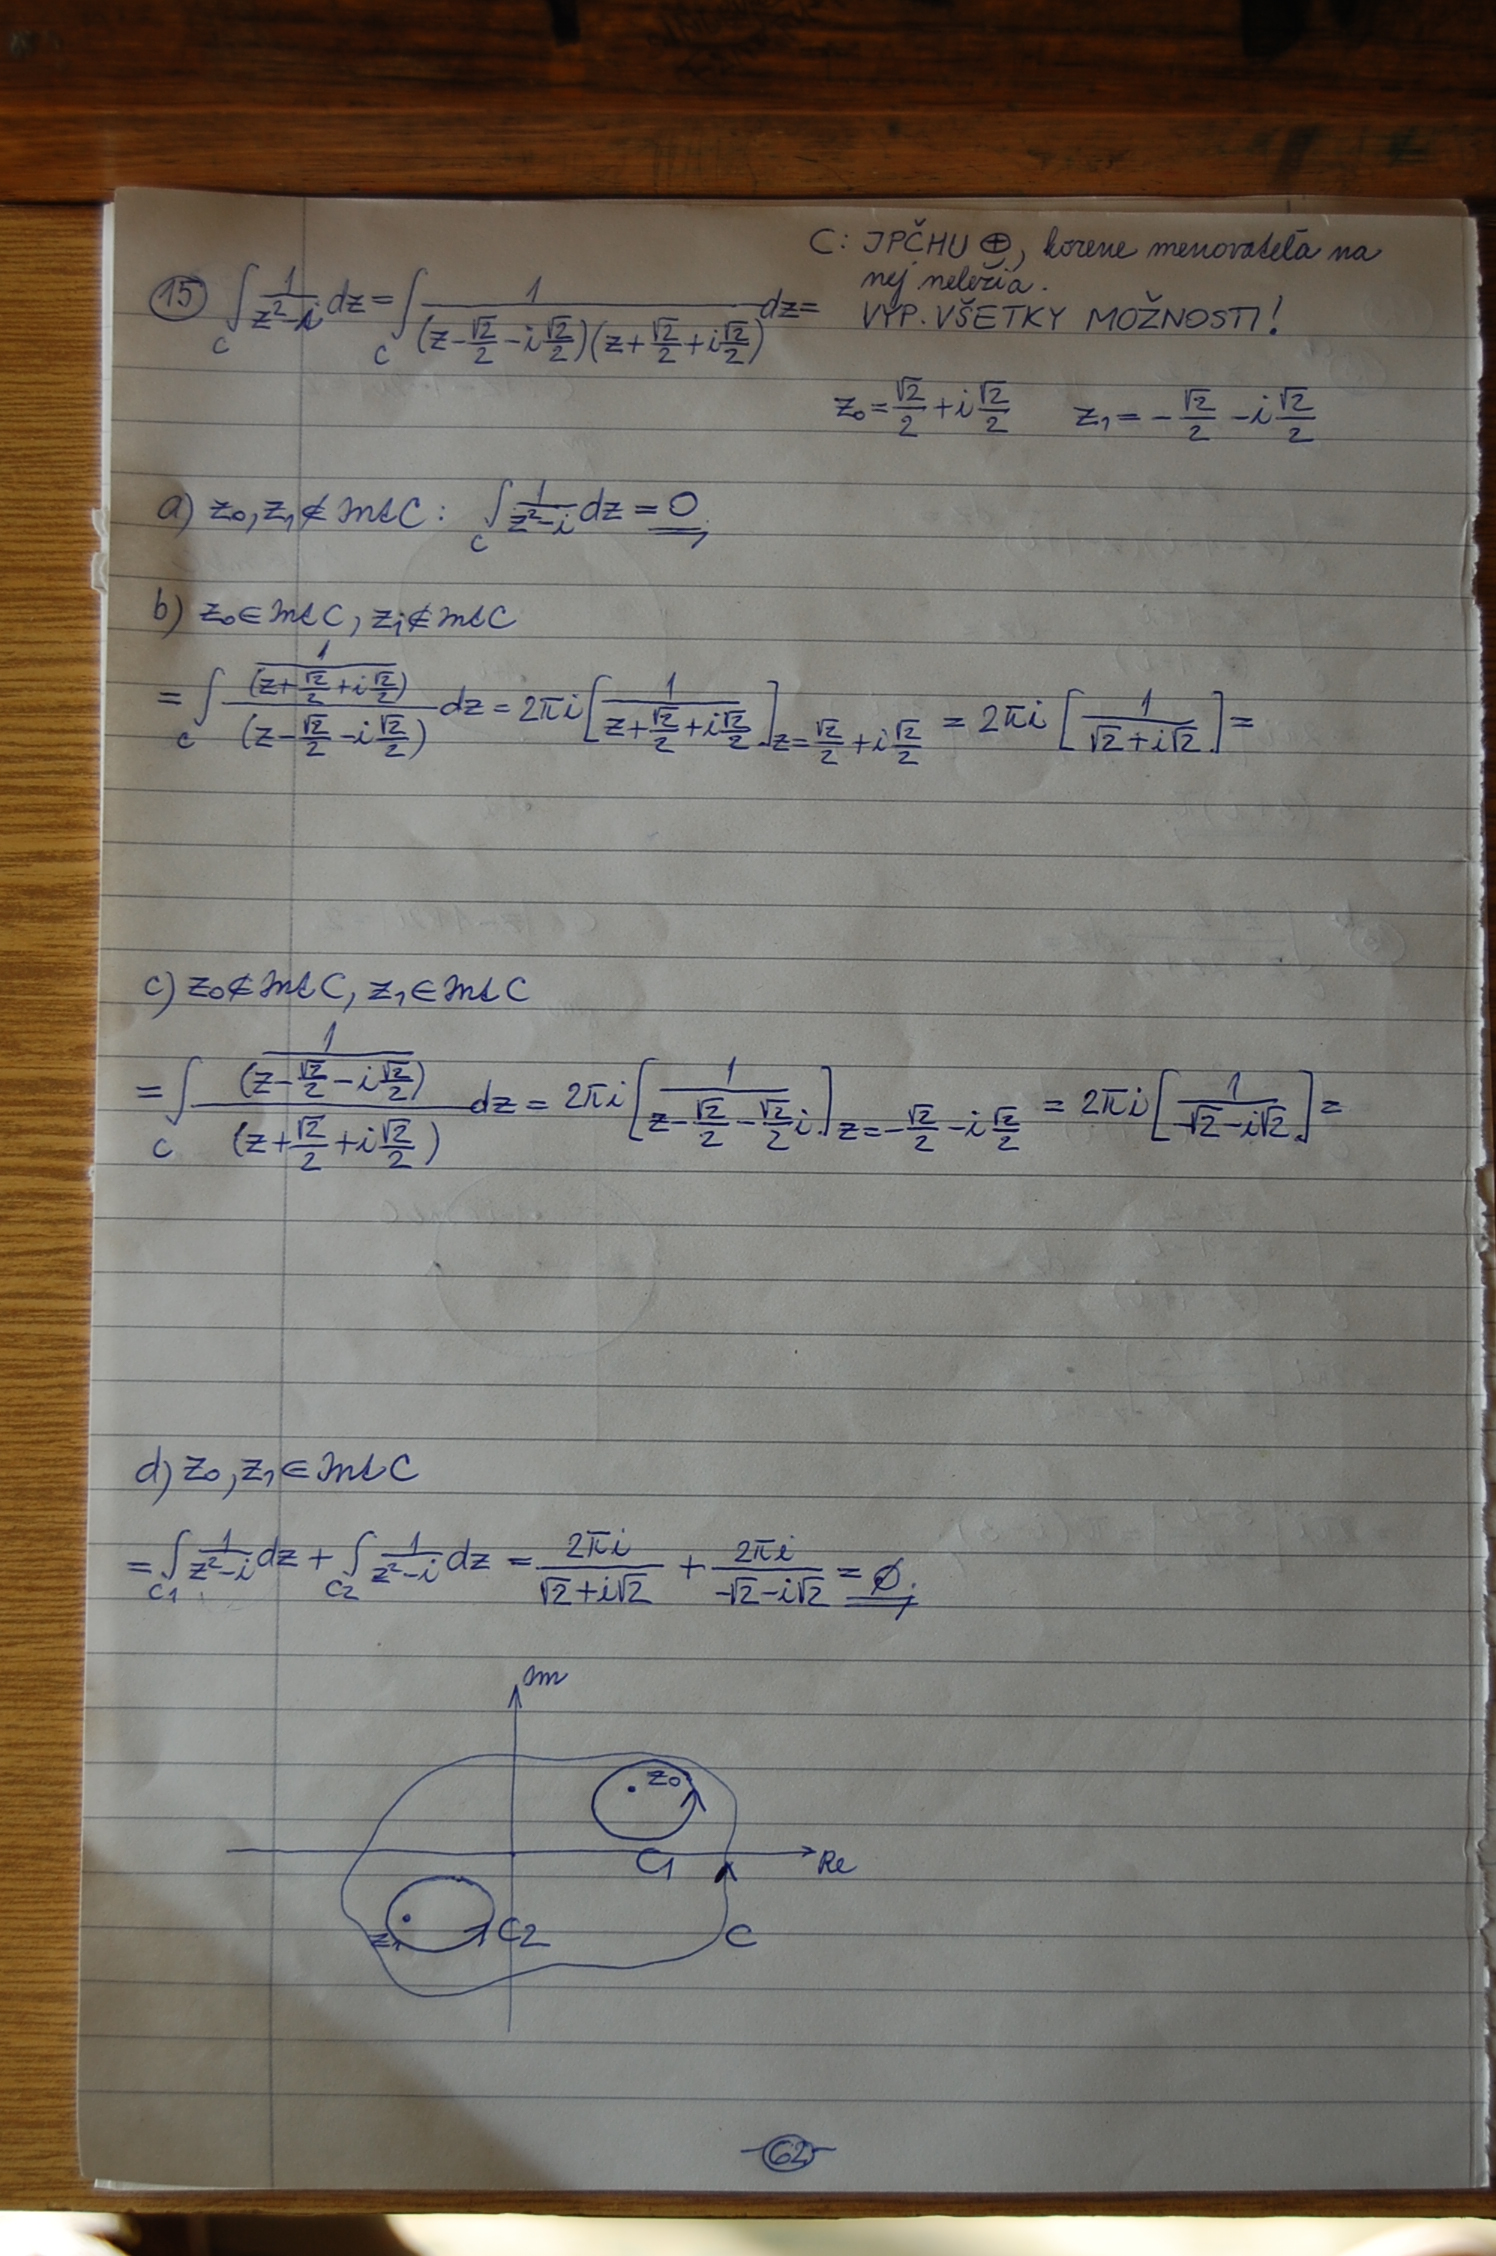 C: JPČHU ⊕, korene menovateľa na
nej neležia.
VYP. VŠETKY MOŽNOSTI!
(15) ∫_C 1/(z²-i) dz = ∫_C 1/((z-√2/2-i√2/2)(z+√2/2+i√2/2)) dz =
z₀ = √2/2 + i√2/2   z₁ = -√2/2 - i√2/2
a) z₀, z₁ ∉ Int C: ∫_C 1/(z²-i) dz = 0
b) z₀ ∈ Int C, z₁ ∉ Int C
= ∫_C (1/(z+√2/2+i√2/2))/(z-√2/2-i√2/2) dz = 2πi [1/(z+√2/2+i√2/2)]_{z=√2/2+i√2/2} = 2πi [1/(√2+i√2)] =
c) z₀ ∉ Int C, z₁ ∈ Int C
= ∫_C (1/(z-√2/2-i√2/2))/(z+√2/2+i√2/2) dz = 2πi [1/(z-√2/2-√2/2 i)]_{z=-√2/2-i√2/2} = 2πi [1/(-√2-i√2)] =
d) z₀, z₁ ∈ Int C
= ∫_C1 1/(z²-i) dz + ∫_C2 1/(z²-i) dz = 2πi/(√2+i√2) + 2πi/(-√2-i√2) = 0
Im
z₀
C1
Re
z₁
C2
C
62